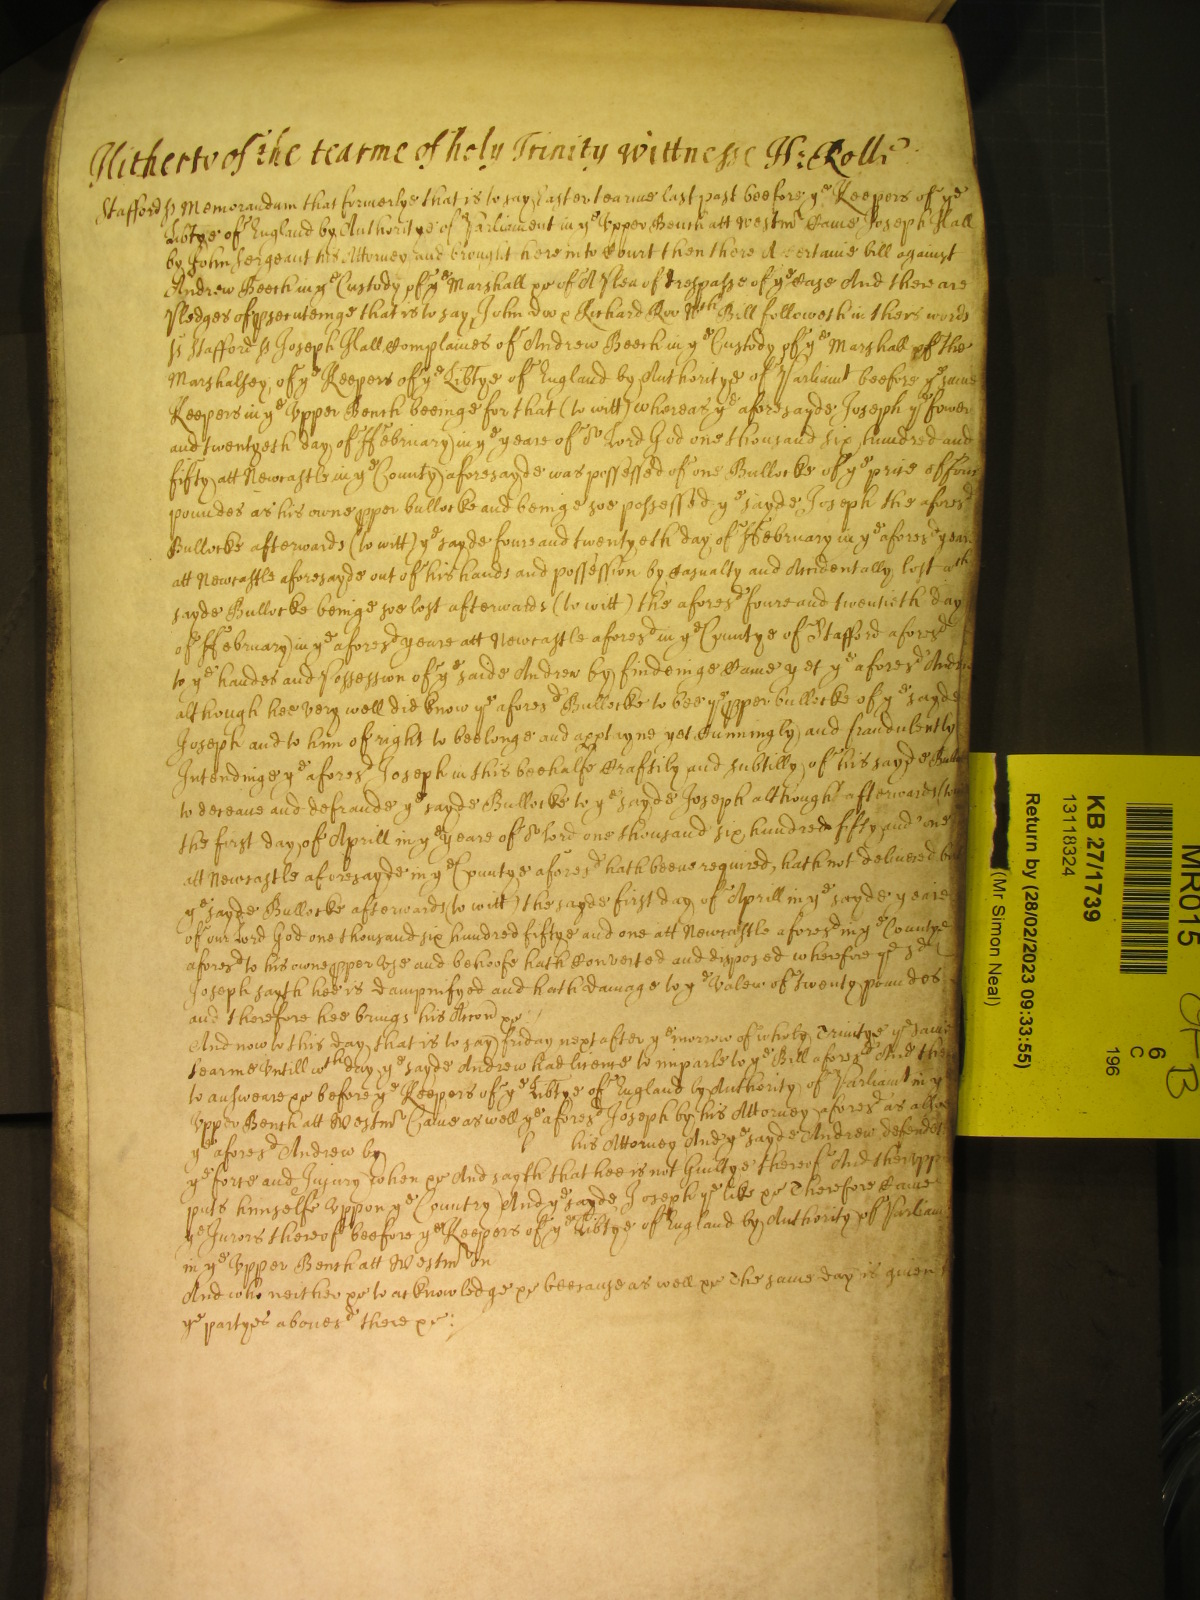 Hitherto of the tearme of holy Trinity wittnesse H: Rolle
Stafford ss Memorandum that formerlye that is to say Easter tearme last past beefore ye Keepers of ye
Libtye of England by Authoritye of Parliament in ye Upper Bench att Westmr Came Joseph Hall
by John Sergeant his Attorney and brought here into Court then there A certaine bill against
Andrew Beech in ye Custody of ye Marshall &c of A Plea of trespasse of ye Case And there are
Pledges of psecuteinge that is to say John doo & Richard Roo wch Bill followeth in theis words
ss Stafford ss Joseph Hall Complaines of Andrew Beech in ye Custody of ye Marshall of the
Marshalsey of ye Keepers of ye Libtye of England by Authoritye of Parliamt beefore ye same
Keepers in ye Upper Bench beeinge for that (to witt) whereas ye aforesayde Joseph ye fower
and twentyeth day of February in ye yeare of or Lord God one thousand six hundred and
fifty att Newcastle in ye County aforesayde was possessed of one Bullocke of ye price of foure
poundes as his owne pper bullocke and beinge soe possessed ye sayde Joseph the aforesd
Bullocke afterwards (to witt) ye sayde foure and twentyeth day of February in ye aforesd yeare
att Newcastle aforesayde out of his hands and possession by Casualty and Accidentally lost wch
sayde Bullocke beinge soe lost afterwards (to witt) the aforesd foure and twentieth day
of February in ye aforesd yeare att Newcastle aforesd in ye Countye of Stafford aforesd
to ye handes and Possession of ye saide Andrew by findeinge Came yet ye aforesd Andrew
although hee very well did know ye aforesd Bullocke to bee ye pper bullocke of ye sayde
Joseph and to him of right to beelonge and apptayne yet Cunningly and fraudulently
Intendinge ye aforesd Joseph in this beehalfe Craftily and subtilly of his sayde
to deceave and defraude ye sayde Bullocke to ye sayde Joseph although afterwards
the first day of Aprill in ye yeare of or lord one thousand six hundred fifty and one
att Newcastle aforesayde in ye Countye aforesd hath beene required, hath not delivered but
ye sayde Bullocke afterwards (to witt) the sayde first day of Aprill in ye sayde yeare
of our Lord God one thousand six hundred fiftye and one att Newcastle aforesd in ye Countye
aforesd to his owne pper Use and behoofe hath Converted and disposed wherefore ye sd
Joseph sayth hee is dampnifyed and hath damage to ye Valew of twenty poundes
and therefore hee brings his &c
And now to this day that is to say friday next after ye morrow of wholy Trinitye ye same
tearme Untill wch day ye sayde Andrew had licence to imparle to ye Bill aforesd And then
to answeare &c before ye Keepers of ye Libtye of England by Authority of Parliamt in ye
Upper Bench att Westmr Came as well ye aforesd Joseph by his Attorney aforesd as allsoe
ye aforesd Andrew by his Attorney And ye sayde Andrew defendeth
ye force and Injury when &c And sayth that hee is not Guiltye thereof And thereuppon
puts himselfe Uppon ye Country And ye sayde Joseph ye like &c Therefore Came
ye Jurors thereof beefore ye Keepers of ye Libtye of England by Authority of Parliamt
in ye Upper Bench att Westmr on
And who neither &c to acknowledge &c beecause as well &c The same day is given
ye partyes abovesd there &c:
MR015
KB 27/1739
13118324
Return by (28/02/2023 09:33:55)
(Mr Simon Neal)
6
C
196